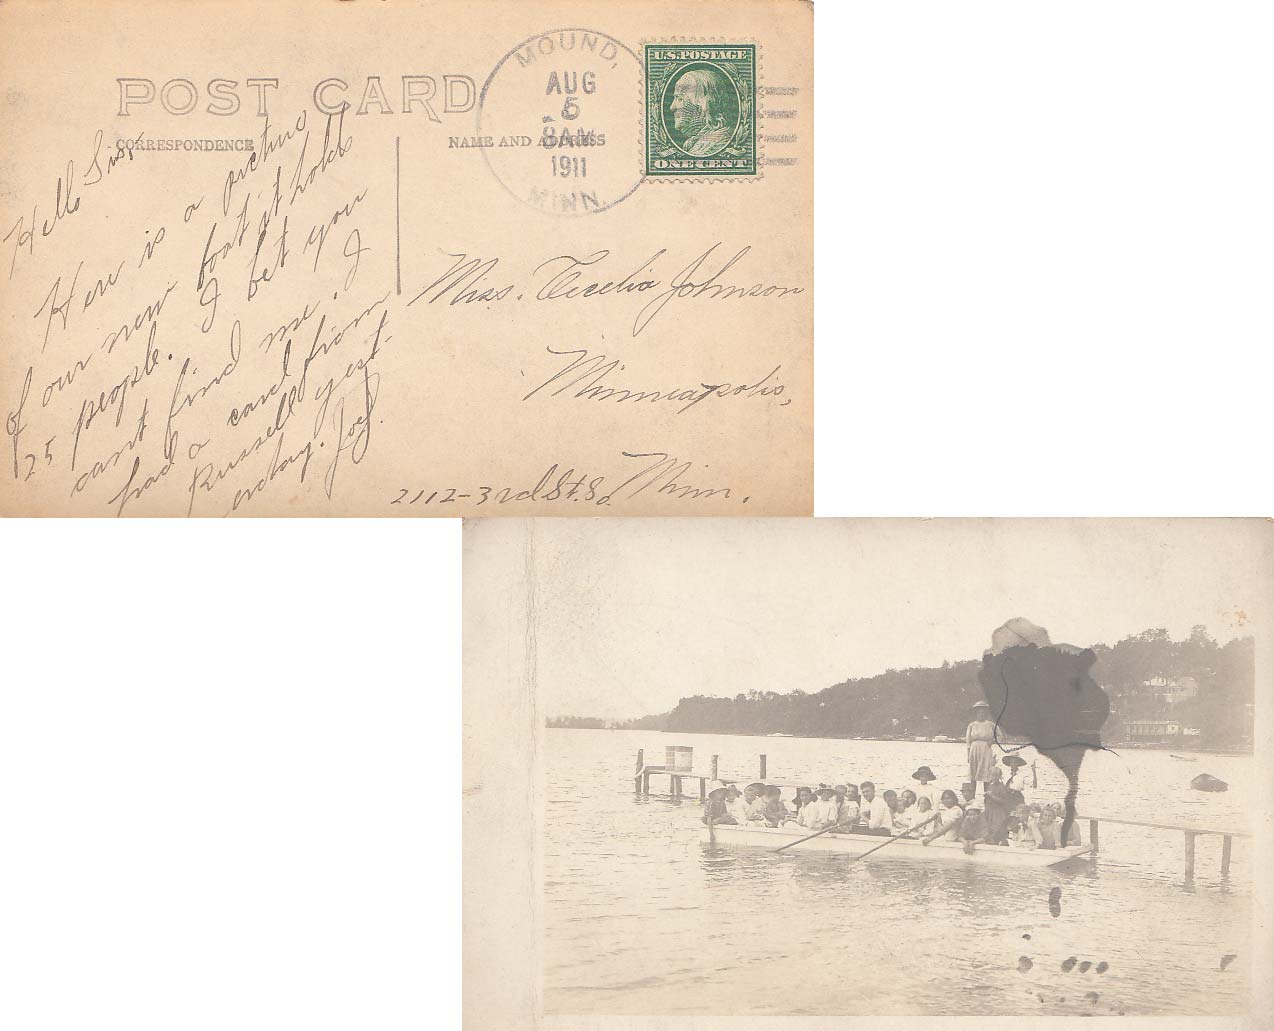 POST CARD
CORRESPONDENCE
NAME AND ADDRESS
MOUND,
AUG
5
8AM
1911
MINN.
U.S. POSTAGE
ONE CENT
Hello Sis,
Here is a picture
of our new boat it holds
25 people. I bet you
cant find me. I
had a card from
Russell yest-
erday. Joe.
Miss. Cecelia Johnson
Minneapolis,
Minn.
2112-3rd St. So.